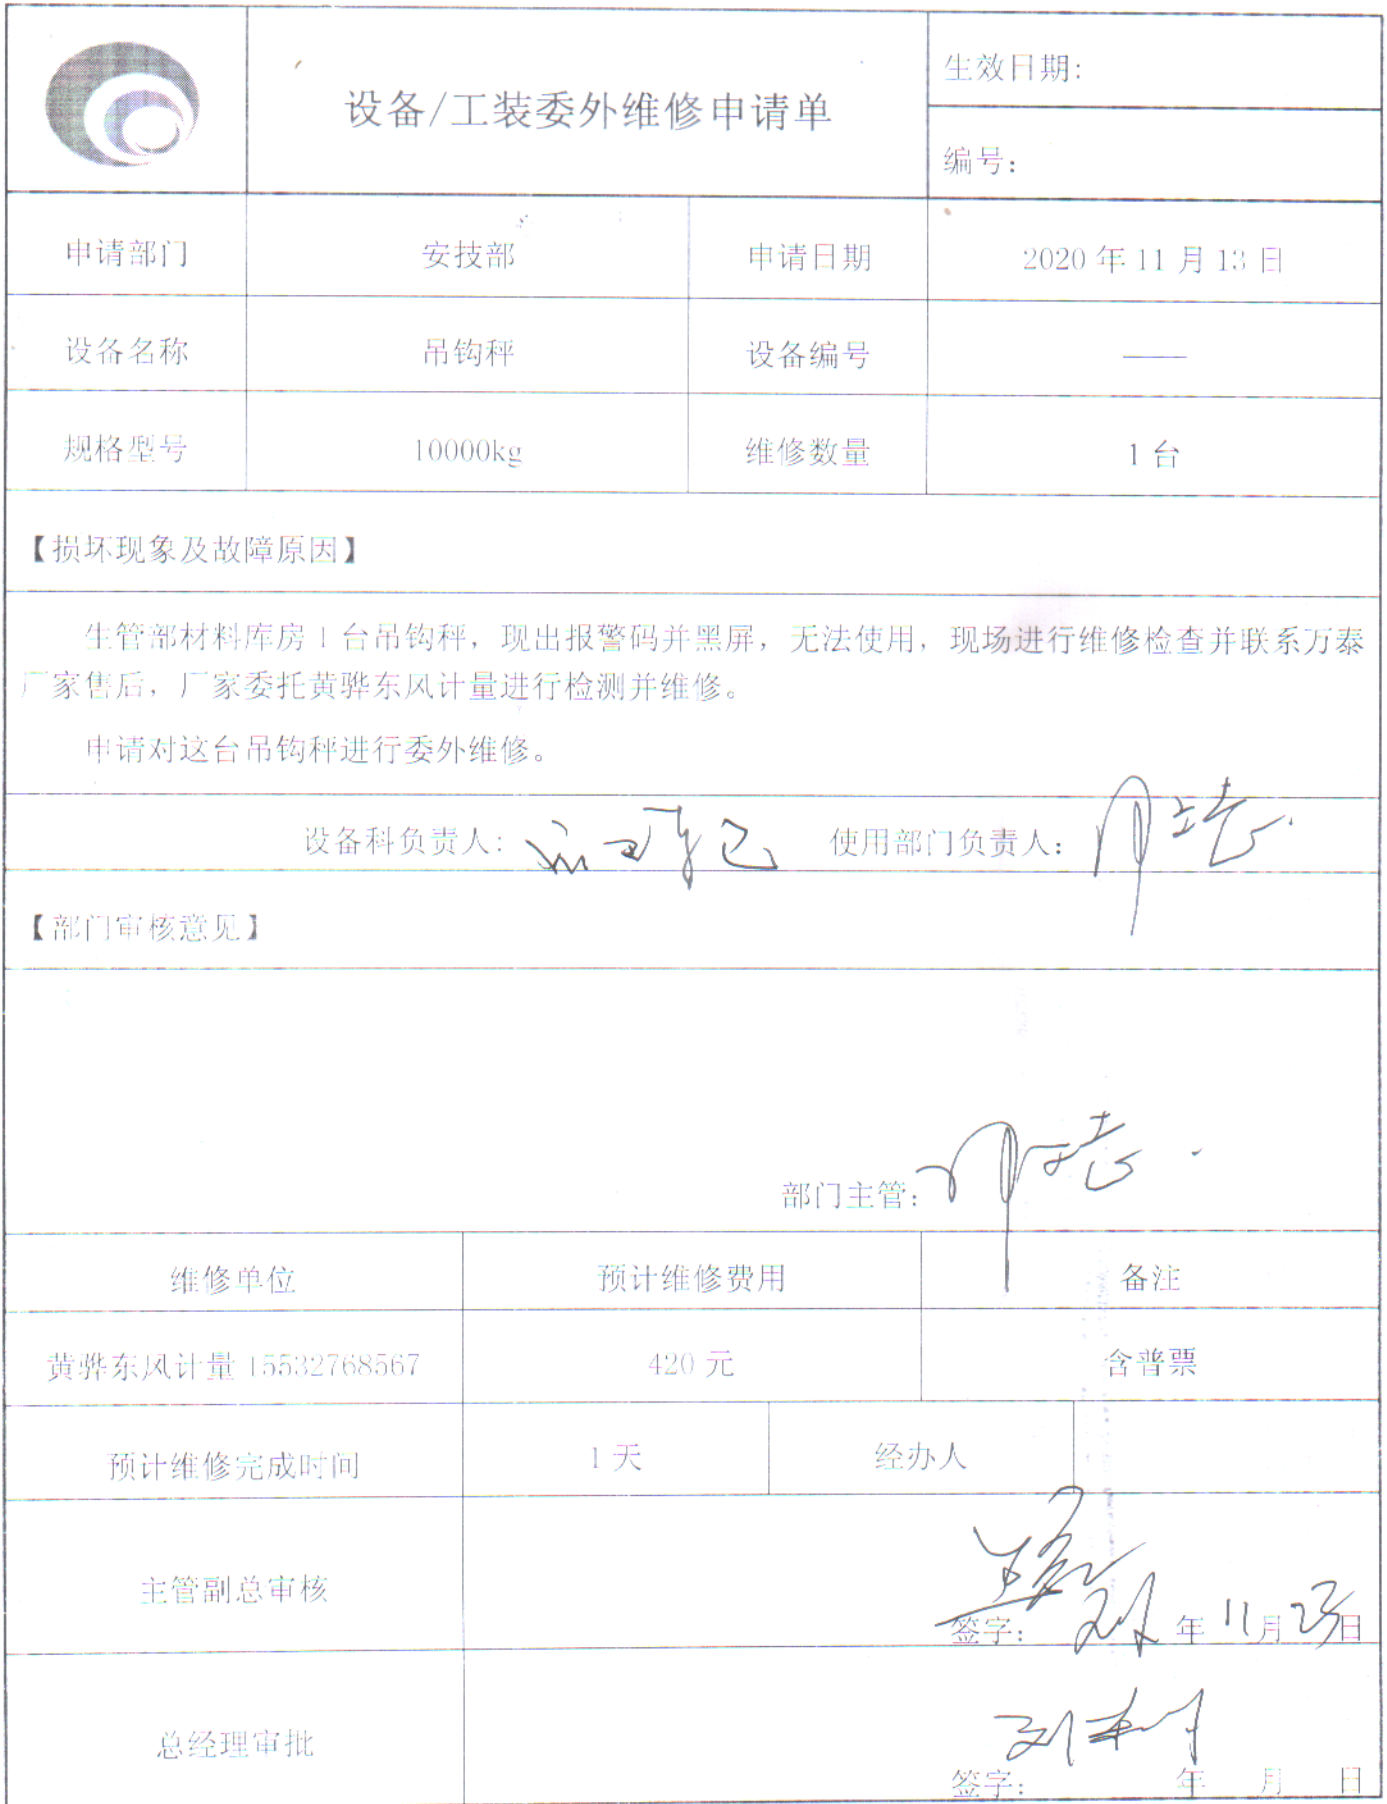 设备/工装委外维修申请单
生效日期:
编号:
申请部门 安技部 申请日期 2020年11月13日
设备名称 吊钩秤 设备编号 ——
规格型号 10000kg 维修数量 1台
【损坏现象及故障原因】
生管部材料库房1台吊钩秤，现出报警码并黑屏，无法使用，现场进行维修检查并联系万泰
厂家售后，厂家委托黄骅东风计量进行检测并维修。
申请对这台吊钩秤进行委外维修。
设备科负责人: 使用部门负责人:
【部门审核意见】
部门主管:
维修单位 预计维修费用 备注
黄骅东风计量 15532768567 420元 含普票
预计维修完成时间 1天 经办人
主管副总审核
签字: 年 11月23日
总经理审批
签字: 年 月 日